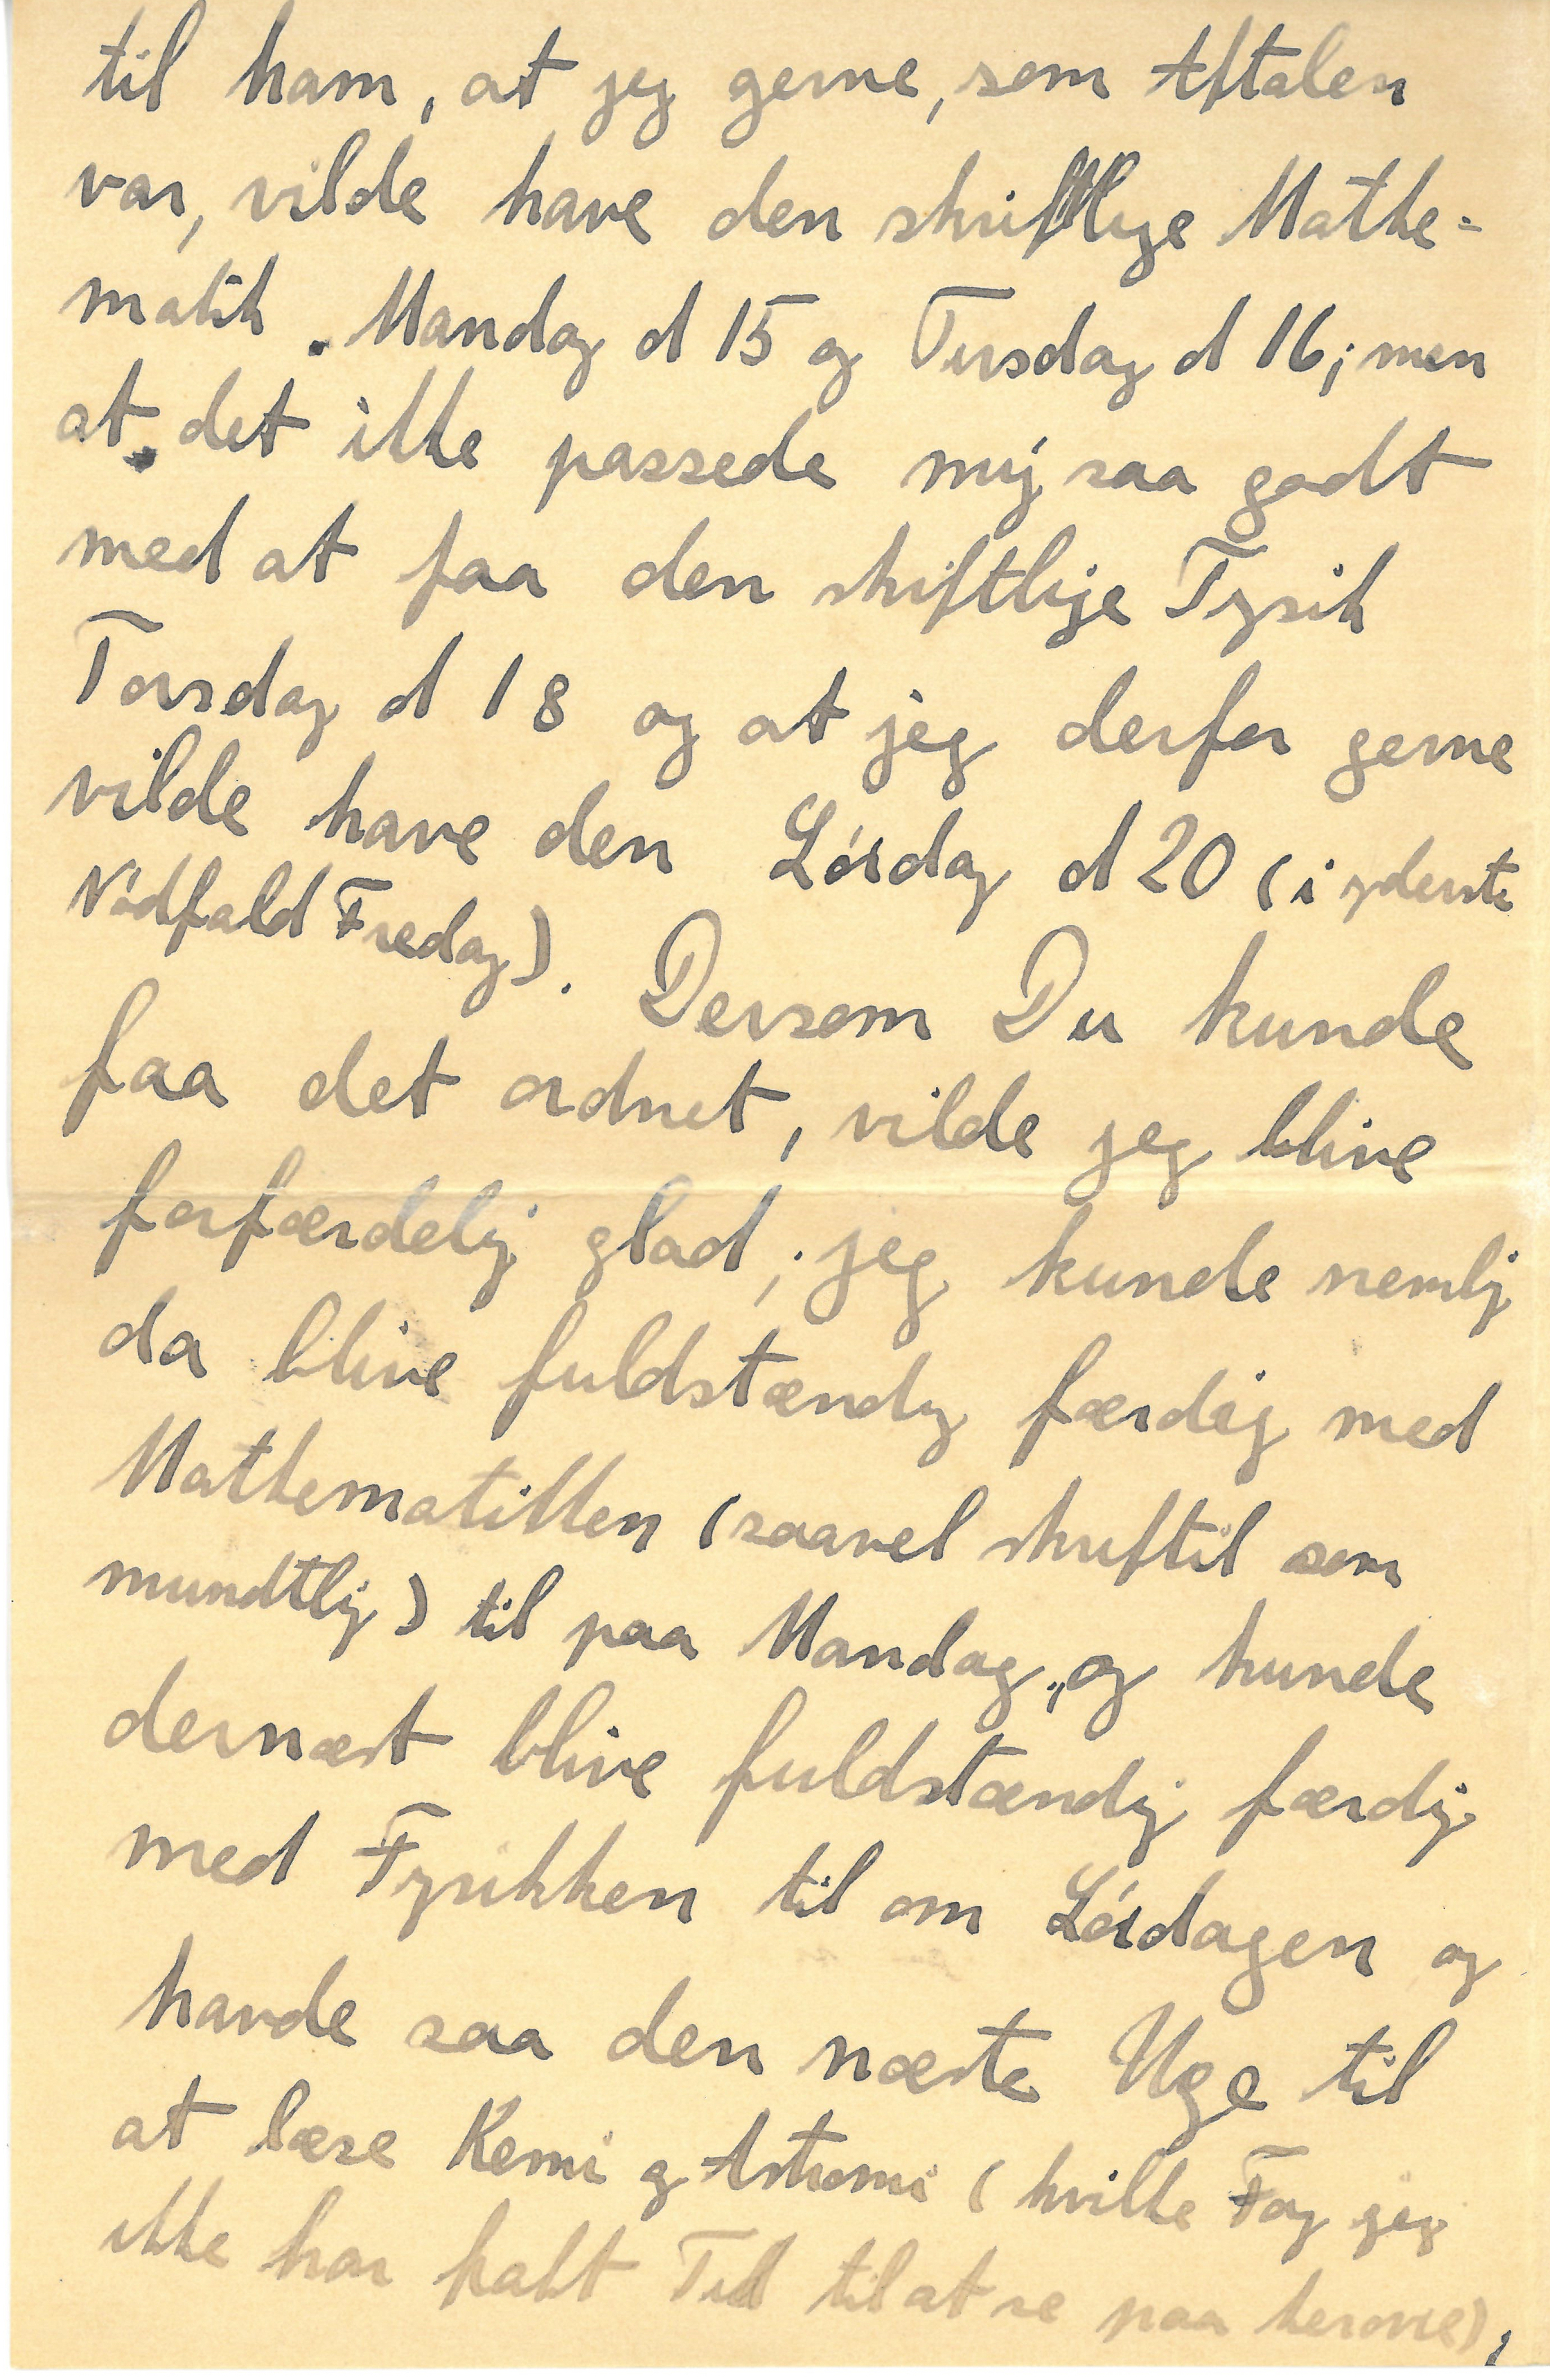 til ham, at jeg gerne, som Aftalen
var, vilde have den skriftlige Mathe-
matik. Mandag d 15 og Tirsdag d 16; men
at det ikke passede mig saa godt
med at faa den skiftlige Fysik
Torsdag d 18 og at jeg derfor gerne
vilde have den Lørdag d 20 (i yderste
Nødfald Fredag). Dersom Du kunde
faa det ordnet, vilde jeg blive
forfærdelig glad; jeg kunde nemlig
da blive fuldstændig færdig med
Mathematikken (saavel skriftil som
mundtlig) til paa Mandag, og kunde
dernæst blive fuldstændig færdig
med Fysikken til om Lørdagen og
havde saa den næste Uge til
at læse Kemi og Astromi (hvilke Fag jeg
ikke har haft Tid til at se paa herovre),